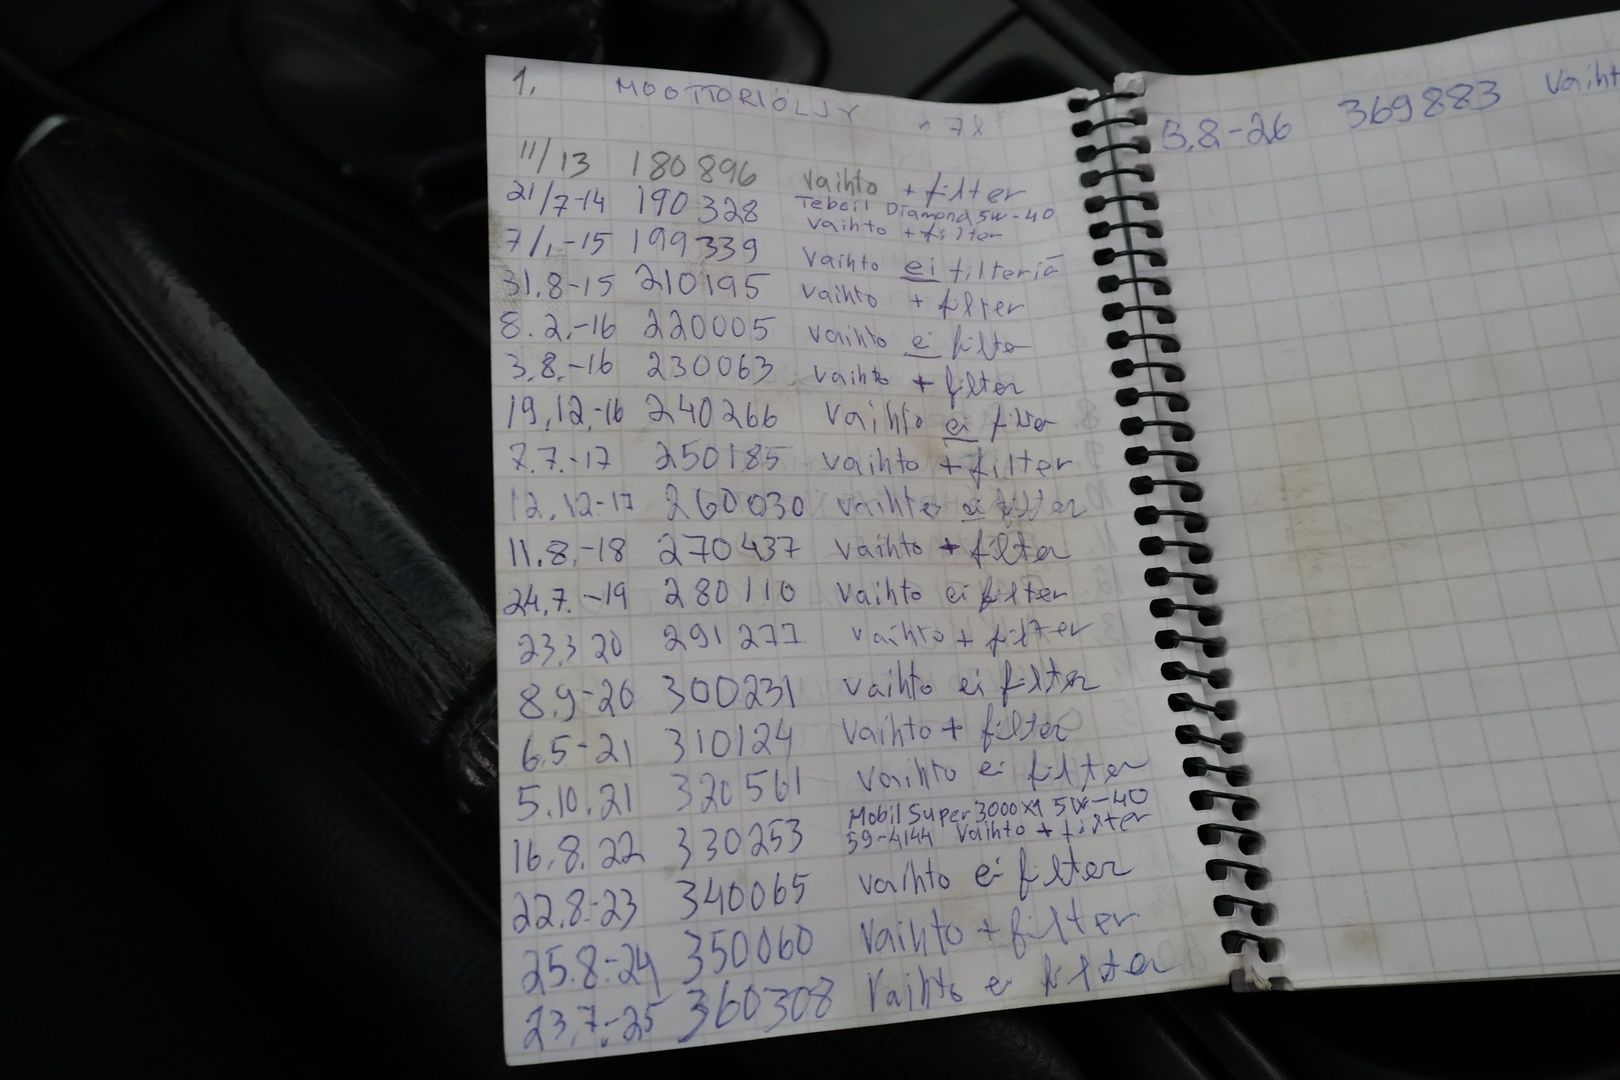 1. MOOTTORIÖLJY n 7 l
11/13 180 896 vaihto + filter
21/7-14 190 328 Teboil Diamond 5w-40
vaihto + filter
7/1.-15 199339 vaihto ei filteriä
31.8-15 210195 vaihto + filter
8.2.-16 220005 vaihto ei filter
3.8.-16 230063 vaihto + filter
19.12.-16 240266 vaihto ei filter
7.7.-17 250185 vaihto + filter
12.12-17 260030 vaihto ei filter
11.8.-18 270437 vaihto + filter
24.7.-19 280110 vaihto ei filter
23.3 20 291277 vaihto + filter
8.9-20 300231 vaihto ei filter
6.5-21 310124 vaihto + filter
5.10.21 320561 vaihto ei filter
16.8.22 330253 Mobil Super 3000 X1 5W-40
59-4144 vaihto + filter
22.8.-23 340065 vaihto ei filter
25.8.-24 350060 vaihto + filter
23.7.-25 360308 vaihto ei filter
3.8-26 369883 vaiht